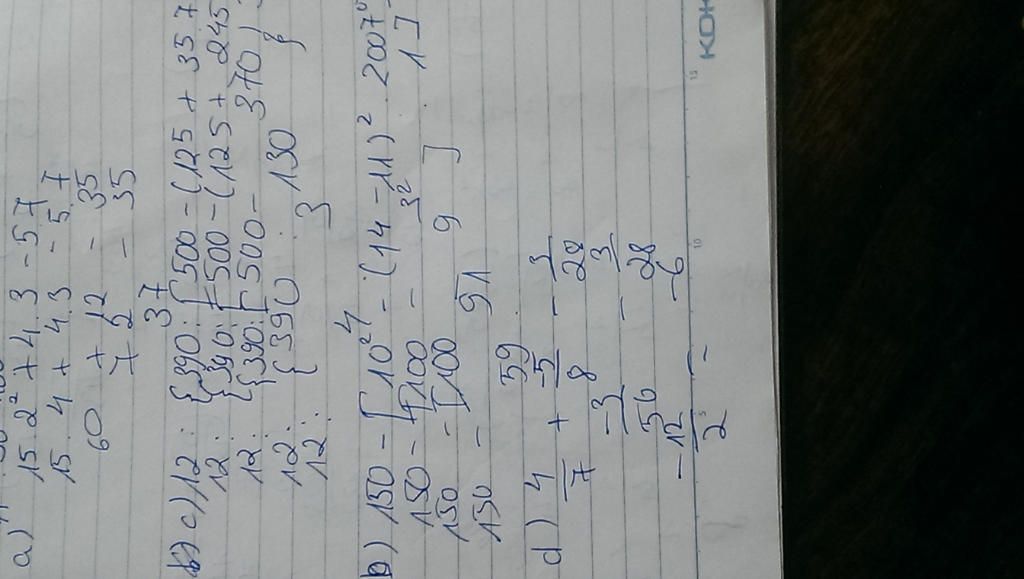 a) 15.2² + 4.3 - 5.7
15. 4 + 4.3 - 5.7
60 + 12 - 35
72 - 35
37
c) 12 : {390 : [500 - (125 + 35.7
12 : {390 : [500 - (125 + 245
12 : {390 : [500 - 370)
12 : {390 : 130 }
12 : 3
4
b) 150 - [10² - (14 - 11)² . 2007⁰
150 - [100 - 3² . 1]
150 - [100 9 ]
150 - 91
59
d) 4/7 + -5/8 - 3/28
-3/56 - 3/28
-12/2 - -6